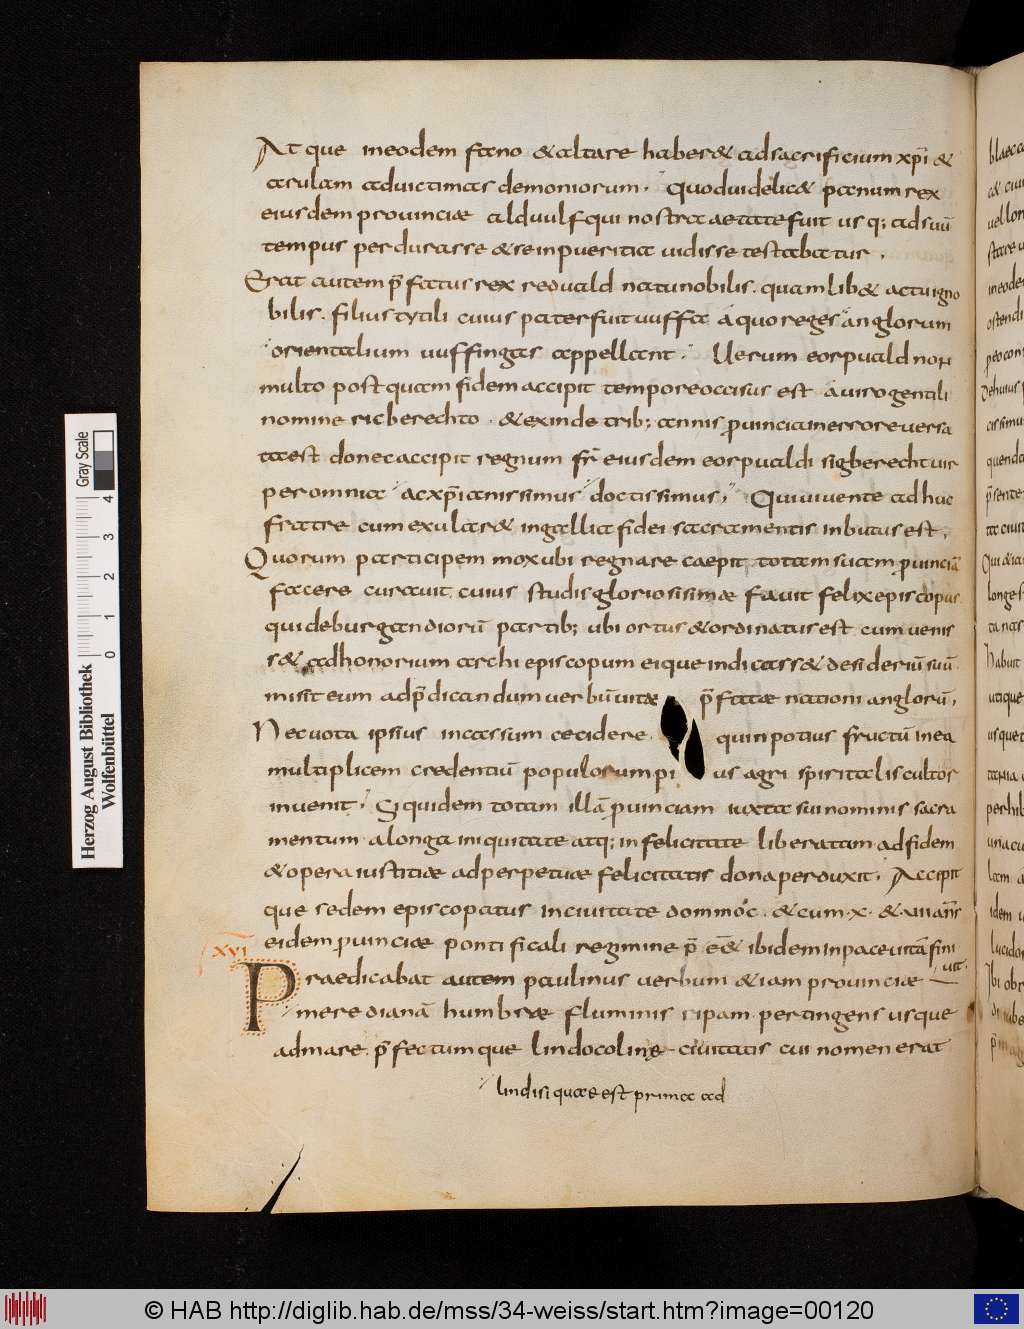 Atque ineodem fano &altare haber& adsacrificium xp̄i &
arulam aduictimas demoniorum. Quoduidelic& fanum rex
eiusdem prouinciae alduulf qui nostra aetate fuit usq; adsuū
tempus perdurasse &seinpueritia uidisse testabatur.
Erat autem p̄fatus rex reduald natunobilis. quamlib& actuigno
bilis. filius tytili cuius paterfuit uuffa aquoreges anglorum
orientalium uuffingas appellant. Uerum eorpuald non
multo postquam fidem accipit tempore occisus est auirogentili
nomine ricberechto. &exinde trib; annis prouinciainerroreuersa
taest donec accipit regnum fr̄ eiusdem eorpualdi sigberecht uir
peromnia acxp̄ianissimus doctissimus. Quiuiuente adhuc
fratre cum exular& ingallia fidei sacramentis inbutus est.
Quorum participem moxubi regnare caepit totamsuam prouinciā
facere curauit. cuius studiis gloriosisimae fauit felixepiscopus
quideburgandiorū partib; ubi ortus &ordinatusest cumuenis
s& adhonorium archiepiscopum eique indicass& desideriū suū
misit eum adp̄dicandum uerbū uitae p̄fatae nationi anglorū.
Nec uota ipsius incassum cecidere. quin potius fructū inea
multiplicem credentiū populorum pi us agri spiritalis cultor
inuenit. Siquidem totam illā prouinciam iuxta sui nominis sacra
mentum alonga iniquitate atq; infelicitate liberatam adfidem
&opera iustitiae adperpetuae felicitatis dona perduxit. Accipit
que sedem episcopatus inciuitate dommoc. &cum .x. & .uii anīs
eidem prouinciae pontificali regimine p̄eē& ibideminpaceuitā fini
uit.
XVI
Praedicabat autem paulinus uerbum &iam prouinciae
meredianā humbrae fluminis ripam pertingens usque
admare. p̄fectumque lindocoline ciuitatis cui nomen erat
lindisi quae est prima ad
blaecca
Herzog August Bibliothek
Wolfenbüttel
Gray Scale
0 1 2 3 4
© HAB http://diglib.hab.de/mss/34-weiss/start.htm?image=00120